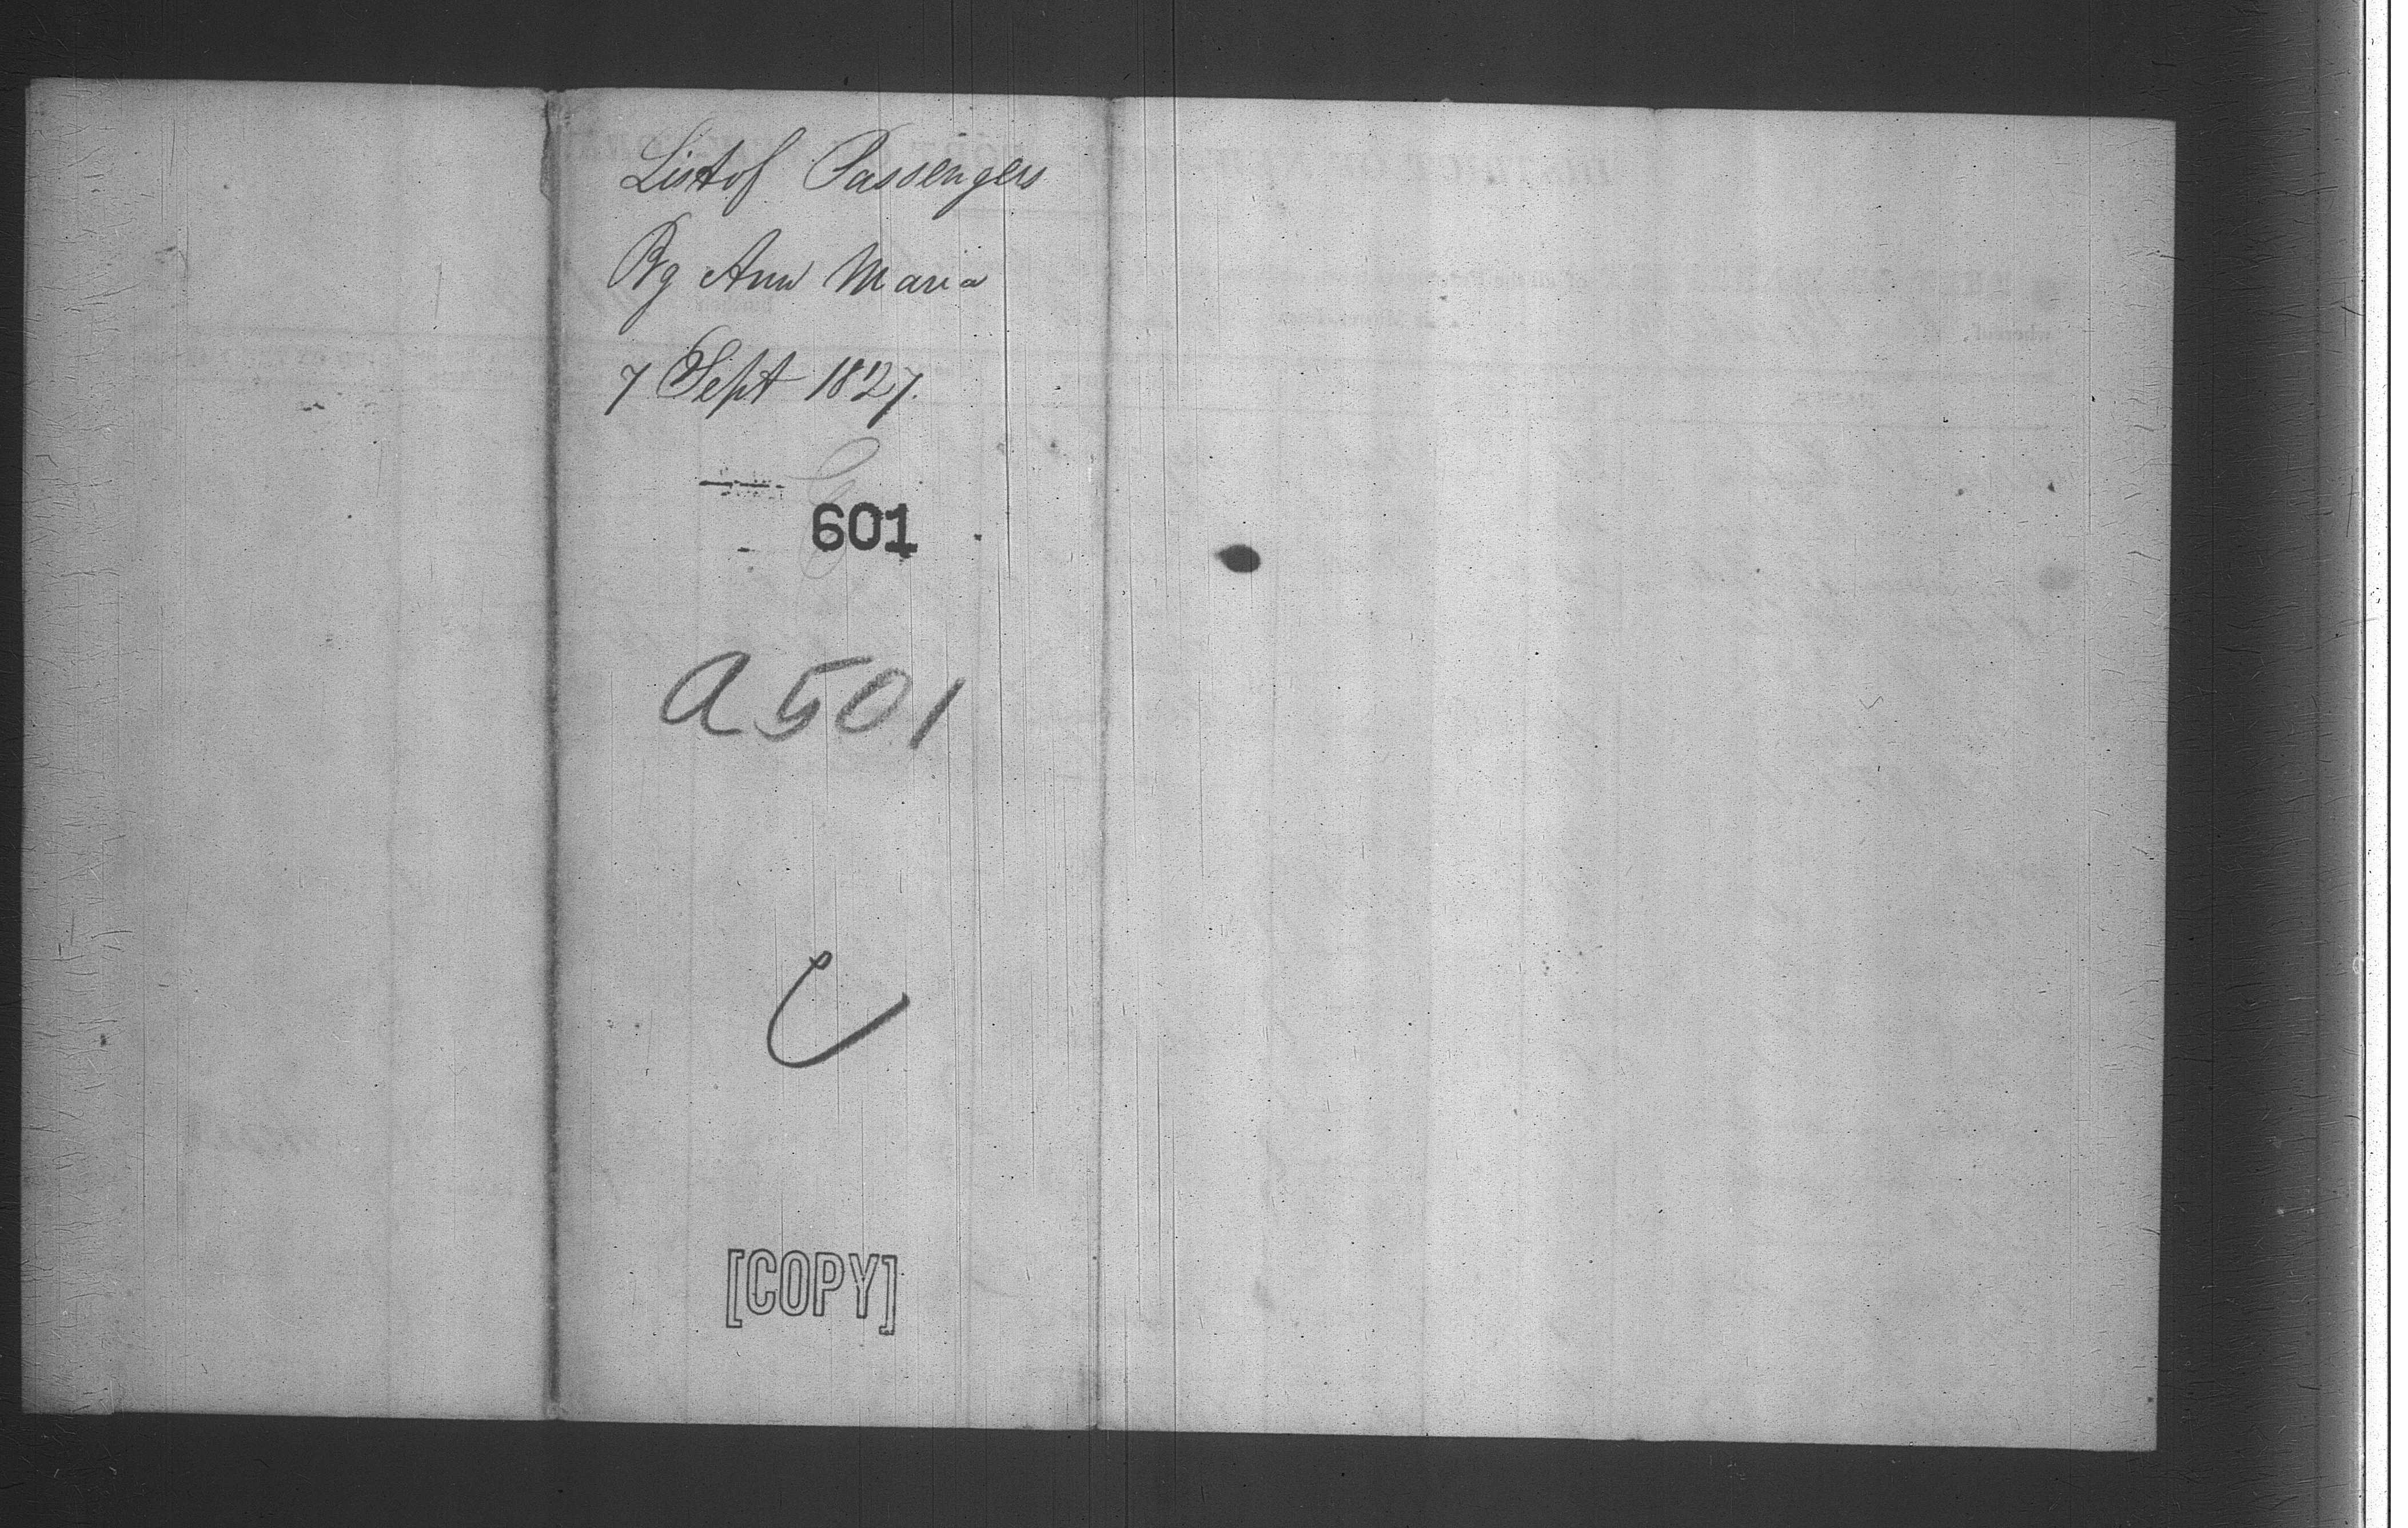 List of Passengers
Bg Ann Maria
7 Sept 1827.
601
A 501
C
[COPY]